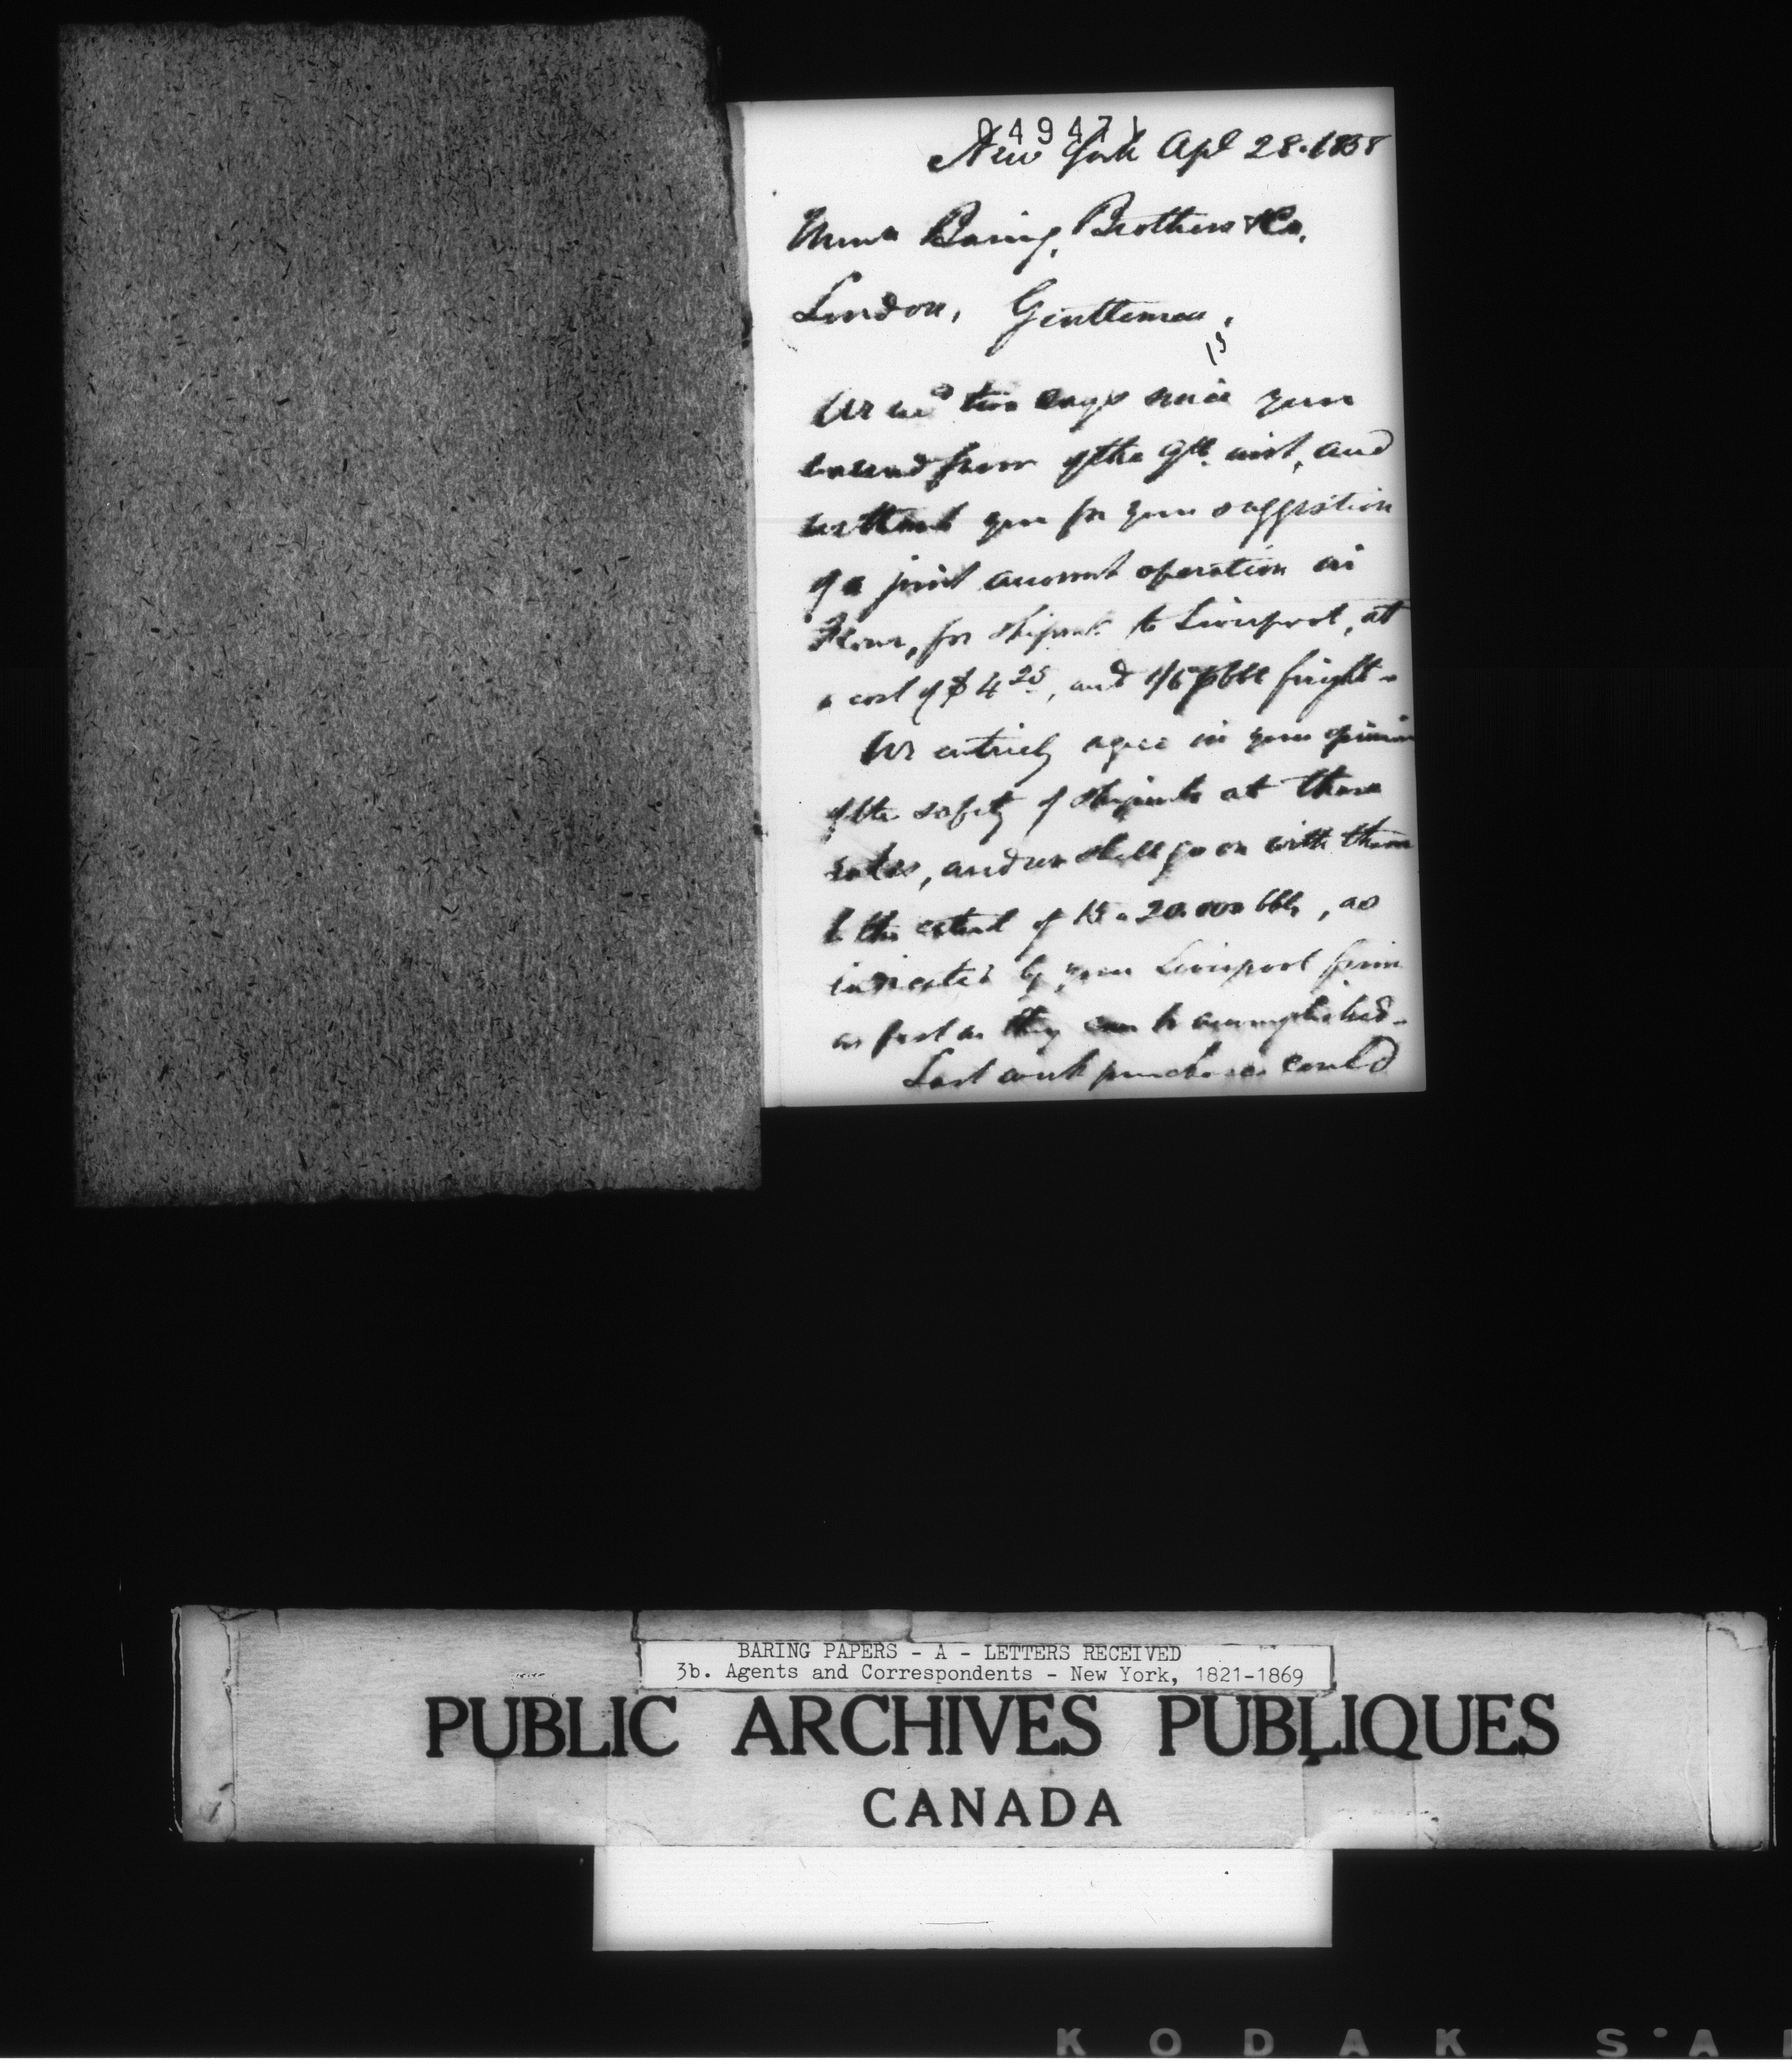 04947
New York Apl 28. 1858
Messrs Baring, Brothers & Co.
London, Gentlemen,
We recd two days since your
favor of the 9th inst, and
we thank you for your suggestion
of a joint account operation in
Flour, for shipmt to Liverpool, at
a cost of $4 25, and 1/6 p bbl freight -
We entirely agree in your opinion
of the safety of shipmts at these
rates, and we shall go on with them
to the extent of 15 a 20.000 bbls, as
indicated by your Liverpool firm
as fast as they can be accomplished -
Last week purchases could
BARING PAPERS - A - LETTERS RECEIVED
3b. Agents and Correspondents - New York, 1821-1869
PUBLIC ARCHIVES PUBLIQUES
CANADA
KODAK SA